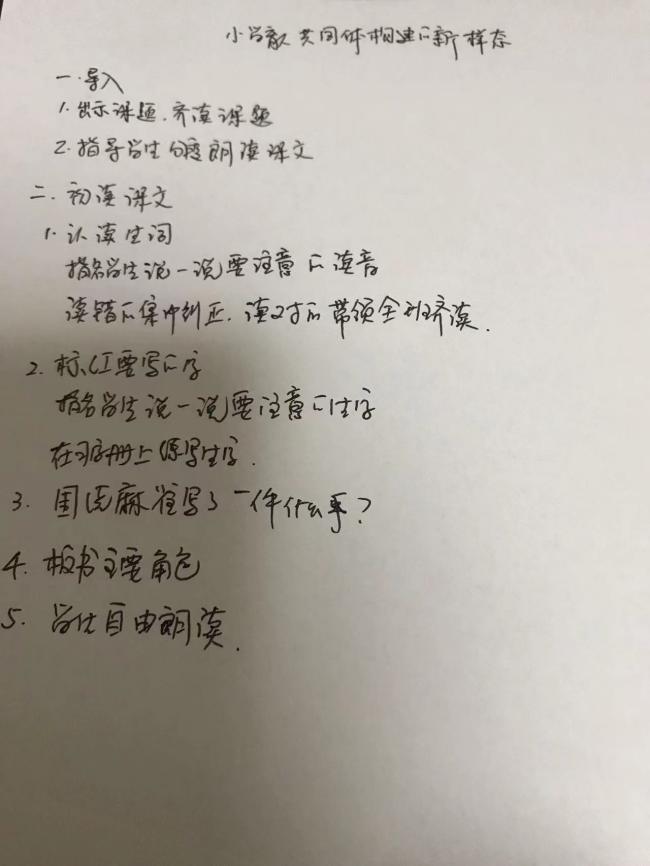 小学教共同体构建的新样态
一.导入
1.出示课题.齐读课题
2.指导学生 朗读课文
二.初读课文
1.认读生词
指名学生说一说要注意的读音
读错的集中纠正.读对的带领全班齐读.
2.标红要写的字
指名学生说一说要注意的生字
在习字册上 写生字.
3.围绕麻雀写了一件什么事?
4.板书主要角色
5.学生自由朗读.